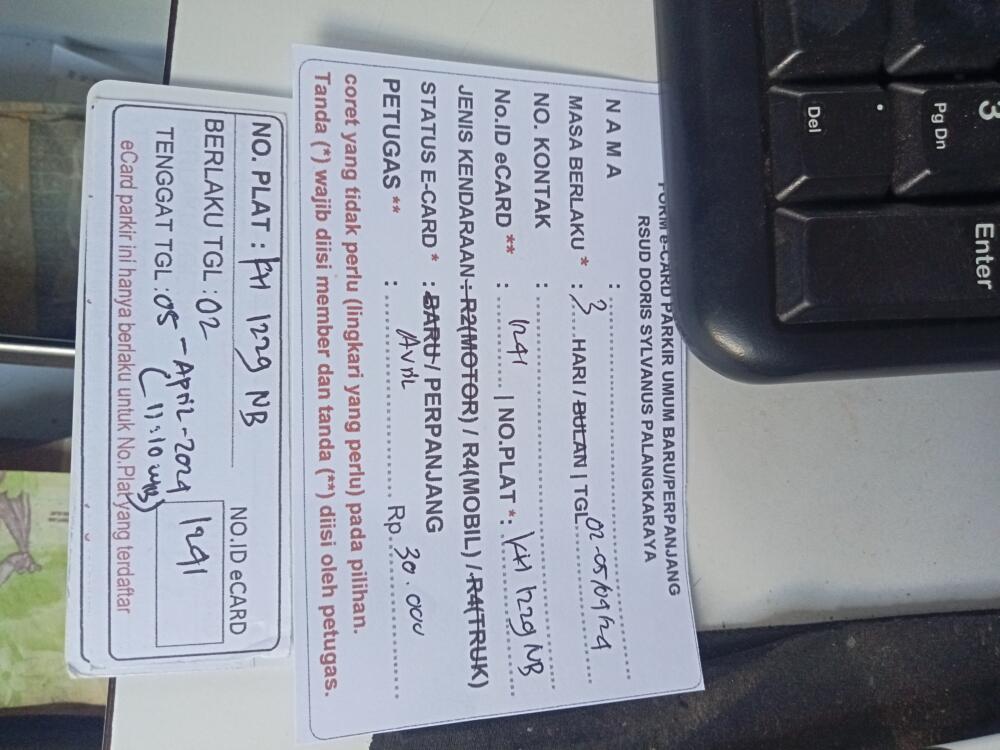 FORM e-CARD PARKIR UMUM BARU/PERPANJANG
RSUD DORIS SYLVANUS PALANGKARAYA
N A M A :
MASA BERLAKU * : 3 HARI / BULAN | TGL. 02-05/04/24
NO. KONTAK :
No.ID eCARD ** : 1241 | NO.PLAT *: KH 1229 NB
JENIS KENDARAAN : R2(MOTOR) / R4(MOBIL) / R4(TRUK)
STATUS E-CARD * : BARU / PERPANJANG
PETUGAS ** : AVRIL Rp 30.000
coret yang tidak perlu (lingkari yang perlu) pada pilihan.
Tanda (*) wajib diisi member dan tanda (**) diisi oleh petugas.
NO. PLAT : KH 1229 NB
NO.ID eCARD
1241
BERLAKU TGL : 02
TENGGAT TGL : 05 - April - 2024
(11:10 WIB)
eCard parkir ini hanya berlaku untuk No.Plat yang terdaftar
3
Pg Dn
.
Del
Enter